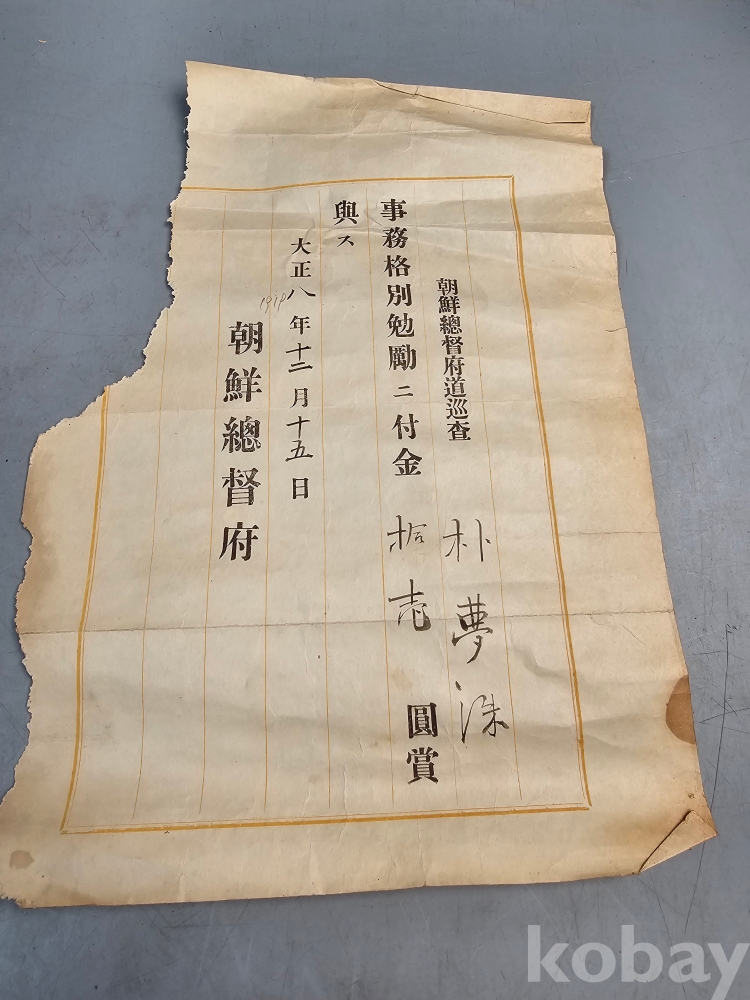 朝鮮總督府道巡査 朴夢洙
事務格別勉勵ニ付金拾壱圓賞
與ス
大正八年十二月十五日
1919
朝鮮總督府
kobay